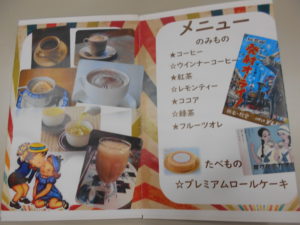 メニュー
のみもの
★コーヒー
☆ウインナーコーヒー
★紅茶
☆レモンティー
★ココア
☆緑茶
★フルーツオレ
たべもの
☆プレミアムロールケーキ